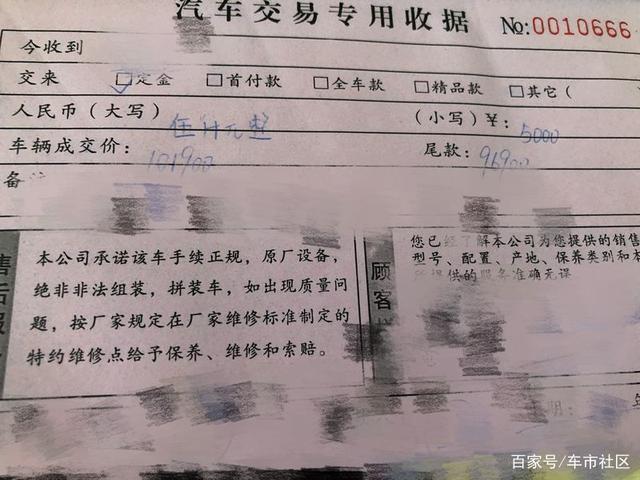 汽车交易专用收据 No:0010666
今收到
交来 □定金 □首付款 □全车款 □精品款 □其它(
人民币(大写) 伍仟元整 (小写)¥: 5000
车辆成交价: 101900 尾款: 96900
备
售后服
本公司承诺该车手续正规,原厂设备,
绝非非法组装,拼装车,如出现质量问
题,按厂家规定在厂家维修标准制定的
特约维修点给予保养、维修和索赔。
顾客
您已经了解本公司为您提供的销售
型号、配置、产地、保养类别和本
提供的服务准确无误
期:
百家号/车市社区